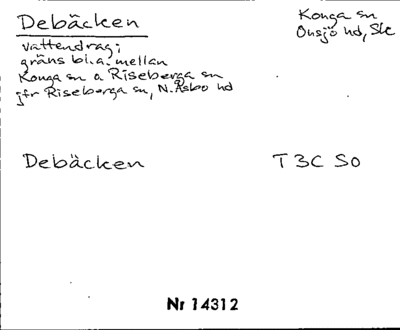 Debäcken
Konga sn
Onsjö hd, Sk
vattendrag;
gräns bl.a. mellan
Konga sn o Riseberga sn
jfr Riseberga sn, N. Åsbo hd
Debäcken
T 3C SO
Nr 14312